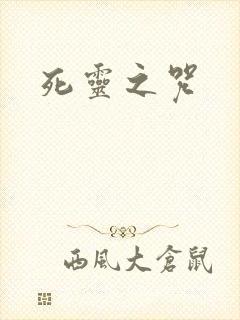 死靈之咒
西風大倉鼠